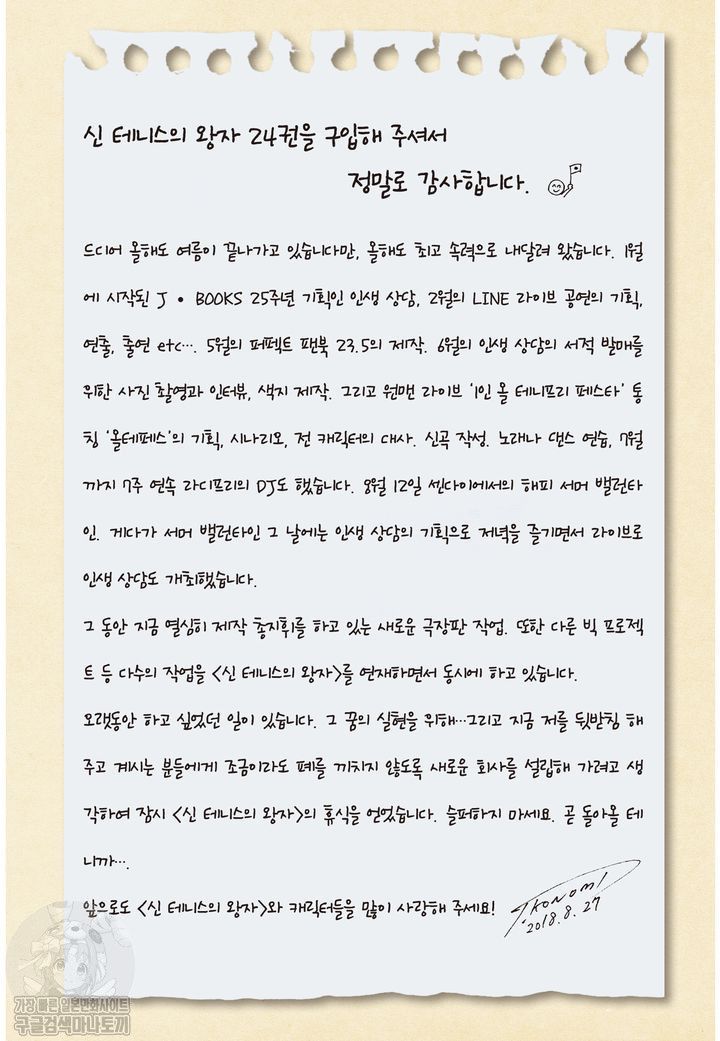 신 테니스의 왕자 24권을 구입해 주셔서
정말로 감사합니다.
드디어 올해도 여름이 끝나가고 있습니다만, 올해도 최고 속력으로 내달려 왔습니다. 1월
에 시작된 J • BOOKS 25주년 기획인 인생 상담, 2월의 LINE 라이브 공연의 기획,
연출, 출연 etc…. 5월의 퍼펙트 팬북 23.5의 제작. 6월의 인생 상담의 서적 발매를
위한 사진 촬영과 인터뷰, 색지 제작. 그리고 원맨 라이브 '1인 올 테니프리 페스타' 통
칭 '올테페스'의 기획, 시나리오, 전 캐릭터의 대사. 신곡 작성. 노래나 댄스 연습, 7월
까지 7주 연속 라디프리의 DJ도 했습니다. 8월 12일 센다이에서의 해피 서머 밸런타
인. 게다가 서머 밸런타인 그 날에는 인생 상담의 기획으로 저녁을 즐기면서 라이브로
인생 상담도 개최했습니다.
그 동안 지금 열심히 제작 총지휘를 하고 있는 새로운 극장판 작업. 또한 다른 빅 프로젝
트 등 다수의 작업을 <신 테니스의 왕자>를 연재하면서 동시에 하고 있습니다.
오랫동안 하고 싶었던 일이 있습니다. 그 꿈의 실현을 위해…그리고 지금 저를 뒷받침 해
주고 계시는 분들에게 조금이라도 폐를 끼치지 않도록 새로운 회사를 설립해 가려고 생
각하여 잠시 <신 테니스의 왕자>의 휴식을 얻었습니다. 슬퍼하지 마세요. 곧 돌아올 테
니까….
앞으로도 <신 테니스의 왕자>와 캐릭터들을 많이 사랑해 주세요!
T.KONOMI
2018.8.27
가장 빠른 일본만화사이트
구글검색마나토끼